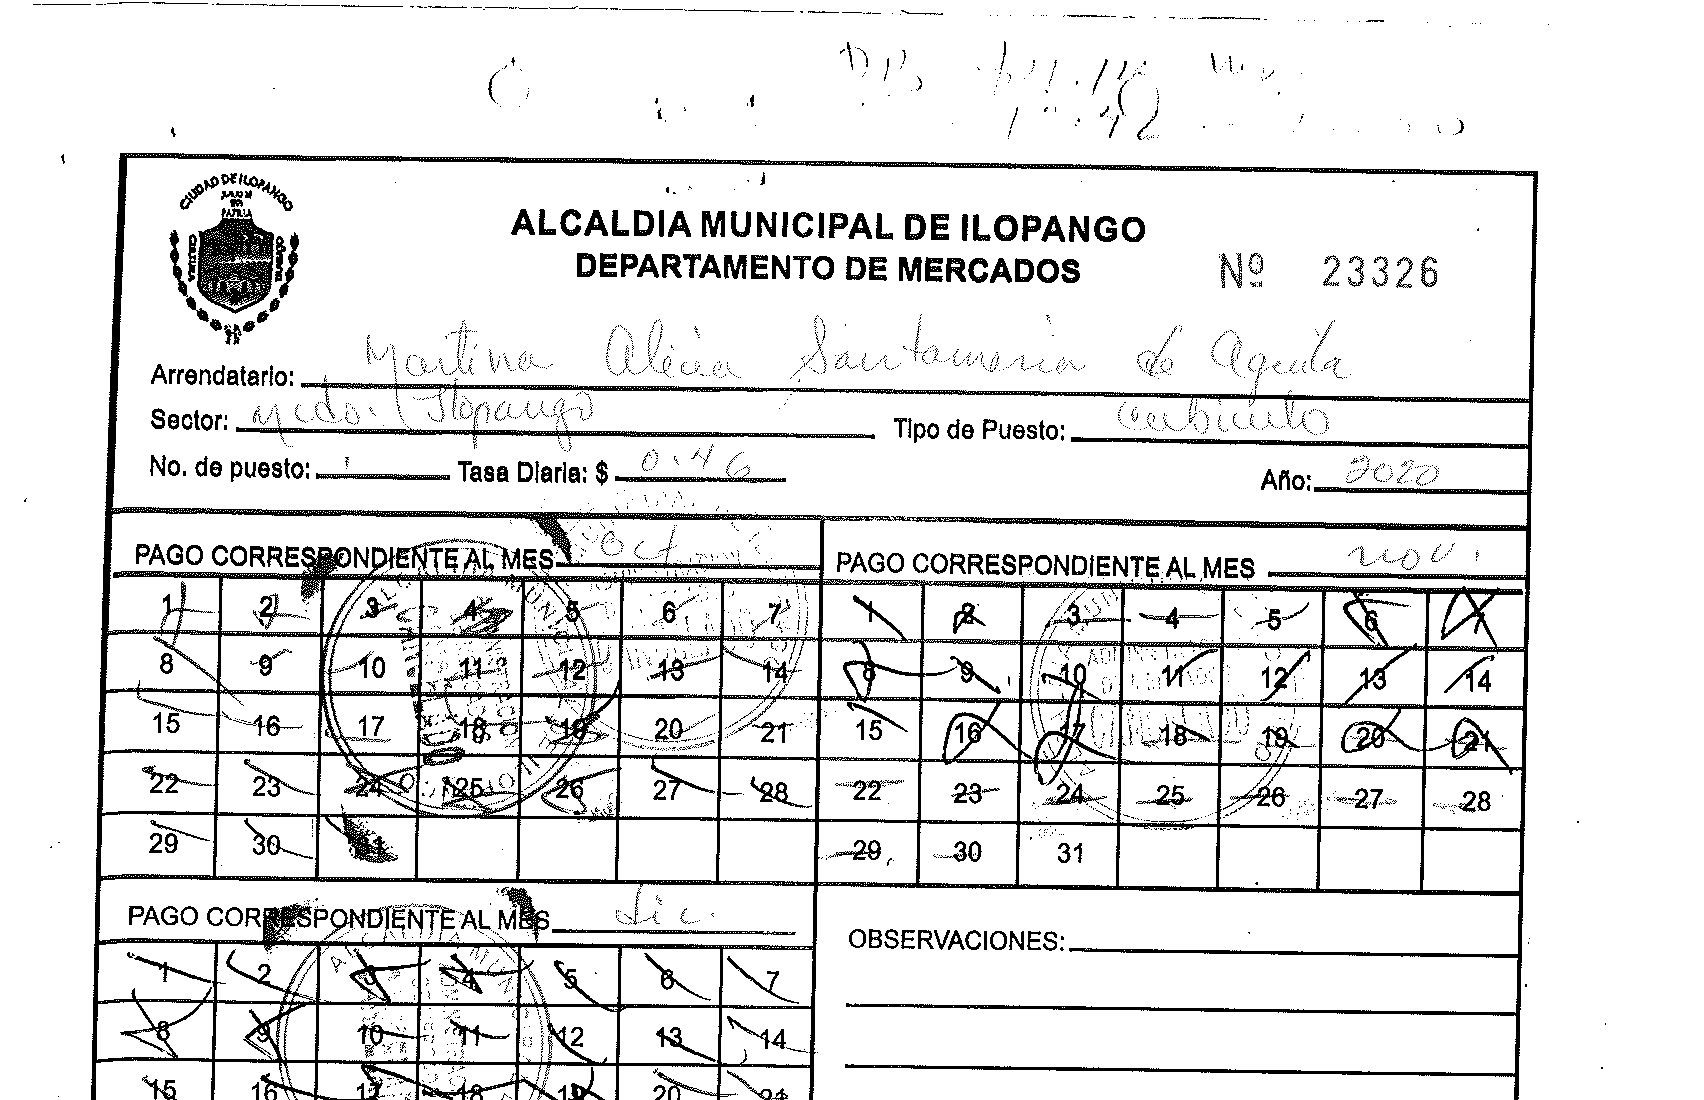 CIUDAD DE ILOPANGO
ALCALDIA MUNICIPAL DE ILOPANGO
DEPARTAMENTO DE MERCADOS
Nº 23326
Arrendatario: Martina Alicia Santamaria de Aguila
Sector: Mcdo. Ilopango Tipo de Puesto: cubiculo
No. de puesto: Tasa Diaria: $ 0.46 Año: 2020
PAGO CORRESPONDIENTE AL MES Oct
1 2 3 4 5 6 7
8 9 10 11 12 13 14
15 16 17 18 19 20 21
22 23 24 25 26 27 28
29 30 31
PAGO CORRESPONDIENTE AL MES nov.
1 2 3 4 5 6 7
8 9 10 11 12 13 14
15 16 17 18 19 20 21
22 23 24 25 26 27 28
29 30 31
PAGO CORRESPONDIENTE AL MES Dic.
1 2 3 4 5 6 7
8 9 10 11 12 13 14
15 16 17 18 19 20 21
OBSERVACIONES: